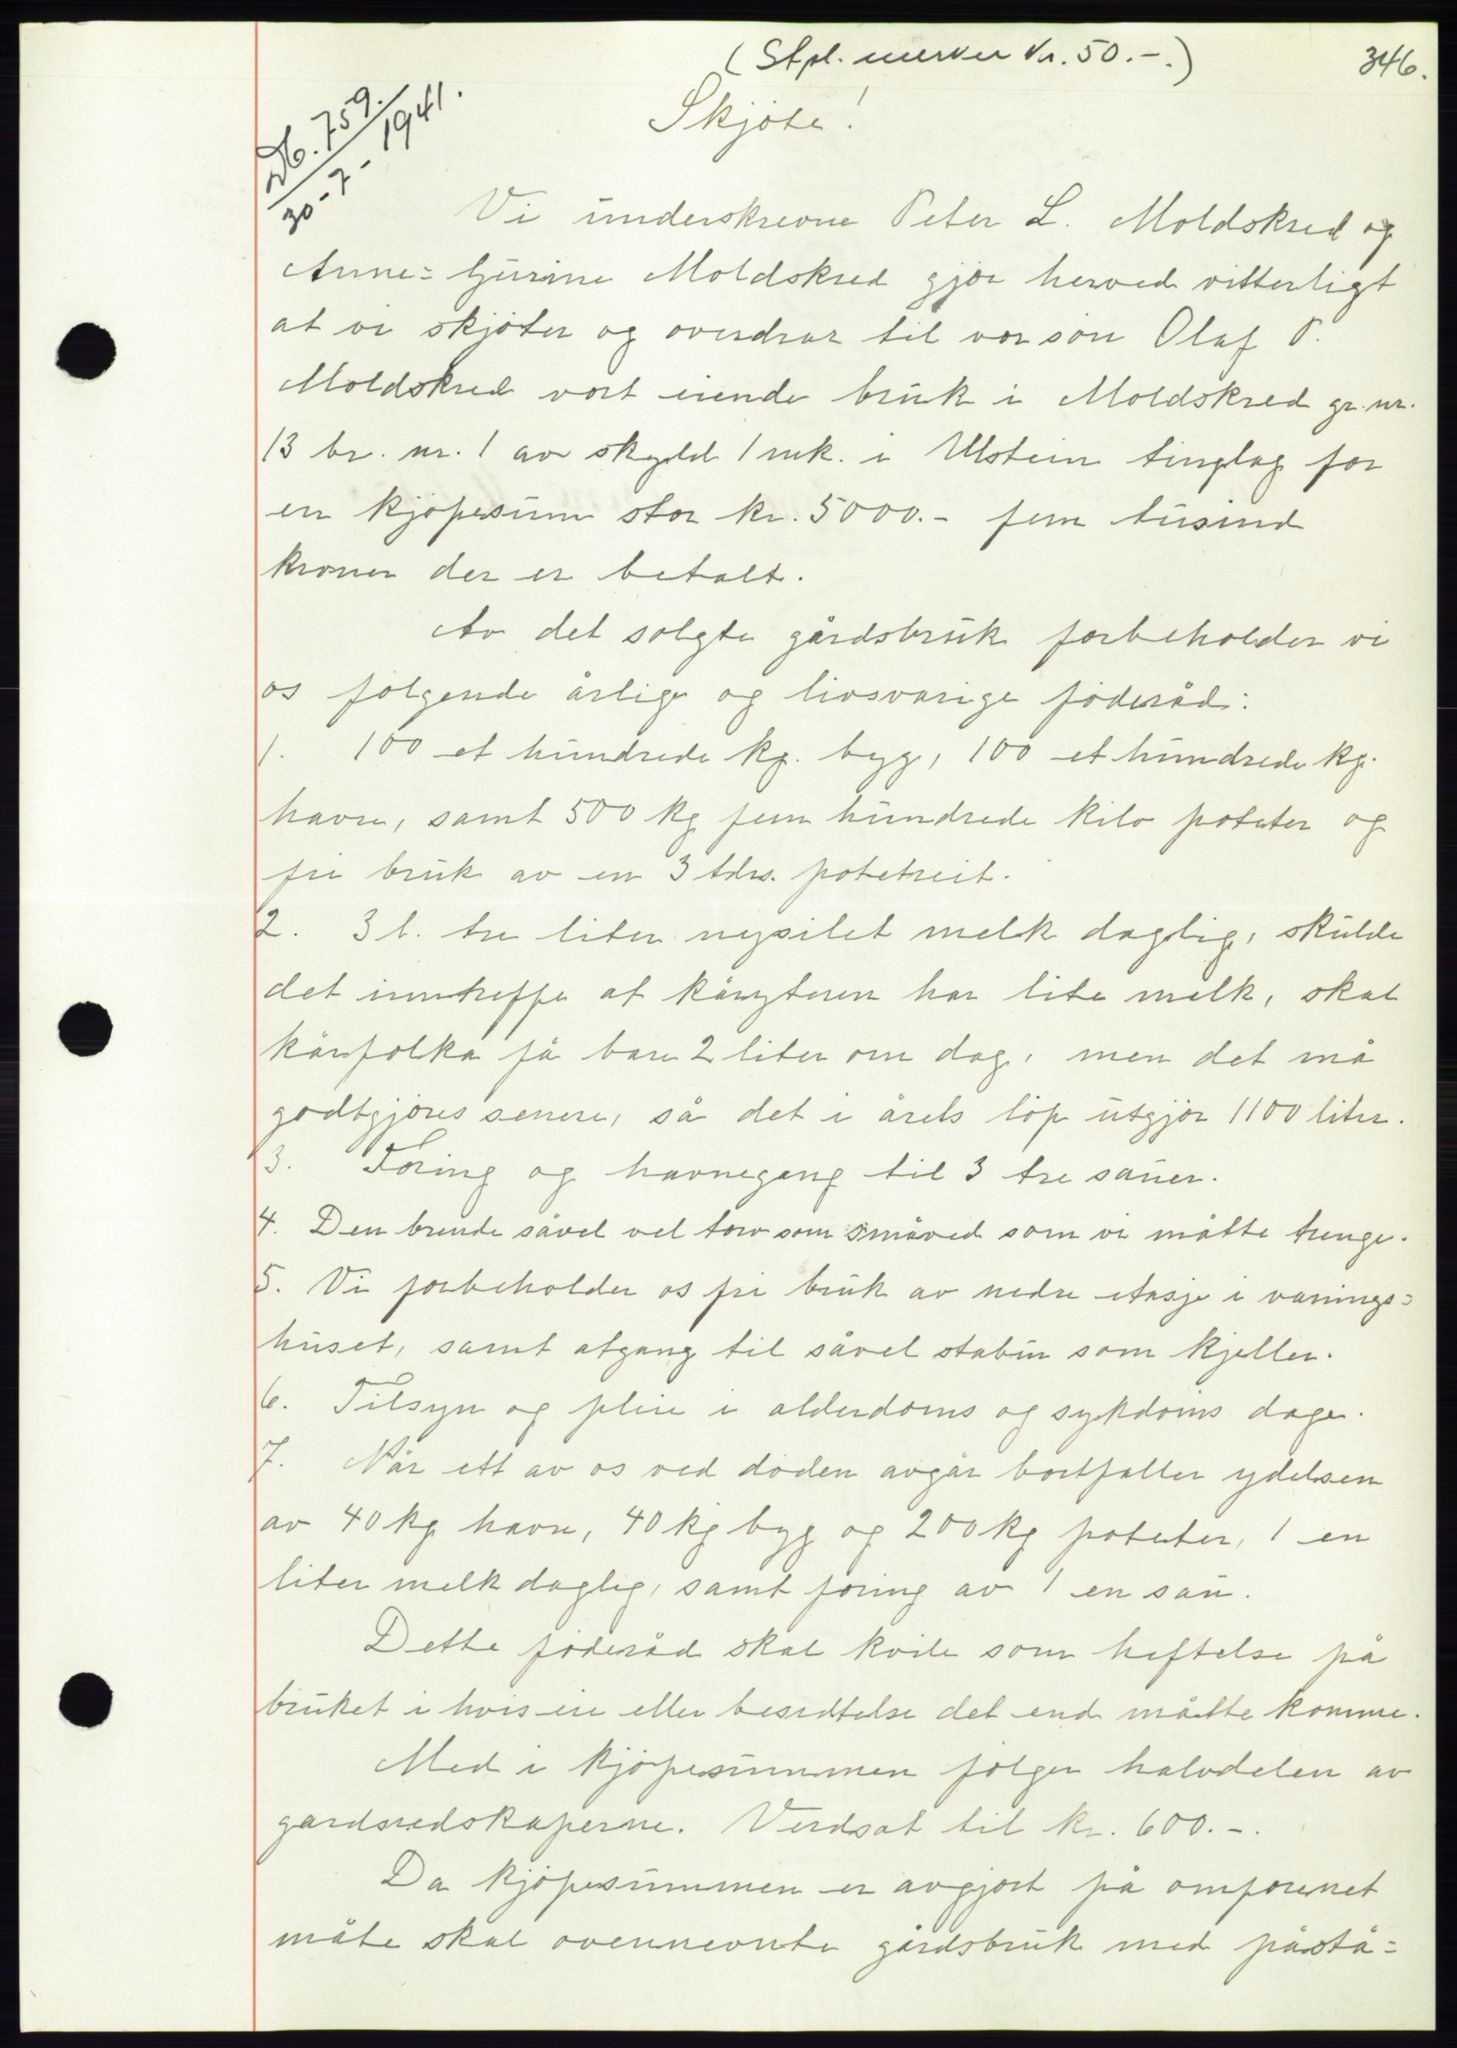 (Stpl. merker kr. 50.-.)
346.
Db. 759.
30-7-1941.
Skjøte!
Vi underskrevne Peter L. Moldskred og
Anne=Gurine Moldskred gjør herved vitterligt
at vi skjøter og overdrar til vor søn Olaf P.
Moldskred vort eiende bruk i Moldskred gr. nr.
13 br. nr. 1 av skyld 1 mk. i Ulstein tinglag for
en kjøpesum stor kr. 5000.- fem tusind
kroner der er betalt.
Av det solgte gårdsbruk forbeholder vi
os følgende årlige og livsvarige føderåd:
1. 100 et hundrede kg. byg, 100 et hundrede kg.
havre, samt 500 kg fem hundrede kilo poteter og
fri bruk av en 3 tdrs. potetreit.
2. 3 l. tre liter nysilet melk daglig, skulde
det inntreffe at kåryteren har lite melk, skal
kårfolka få bare 2 liter om dag, men det må
godtgjøres senere, så det i årets løp utgjør 1100 liter.
3. Foring og havnegang til 3 tre sauer.
4. Den brende såvel vel torv som småved som vi måtte trenge.
5. Vi forbeholder os fri bruk av nedre etasje i vånings=
huset, samt atgang til såvel stabur som kjeller.
6. Tilsyn og pleie i alderdoms og sykdoms dage.
7. Når ett av os ved døden avgår bortfaller ydelsen
av 40 kg havre, 40 kg byg og 200 kg poteter, 1 en
liter melk daglig, samt foring av 1 en sau.
Dette føderåd skal kvile som heftelse på
bruket i hvis eie eller besidtelse det end måtte komme.
Med i kjøpesummen følger halvdelen av
gardsredskaperne. Verdsat til kr. 600.-.
Da kjøpesummen er avgjort på omforenet
måte skal ovennevnte gårdsbruk med påstå=